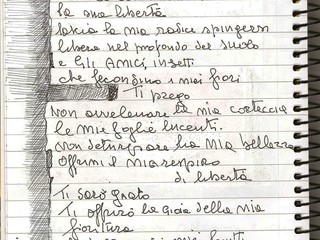 la sua libertà
lascia la mia radice spingersi
libera nel profondo del suolo
e Gli AMICI, insetti
che fecondino i miei fiori
Ti prego
Non avvelenare la mia corteccia
le mie foglie lucenti.
Non deturpare la mia bellezza
offrimi il mio respiro
di libertà
Ti sarò grato
Ti offrirò la Gioia della mia
fioritura